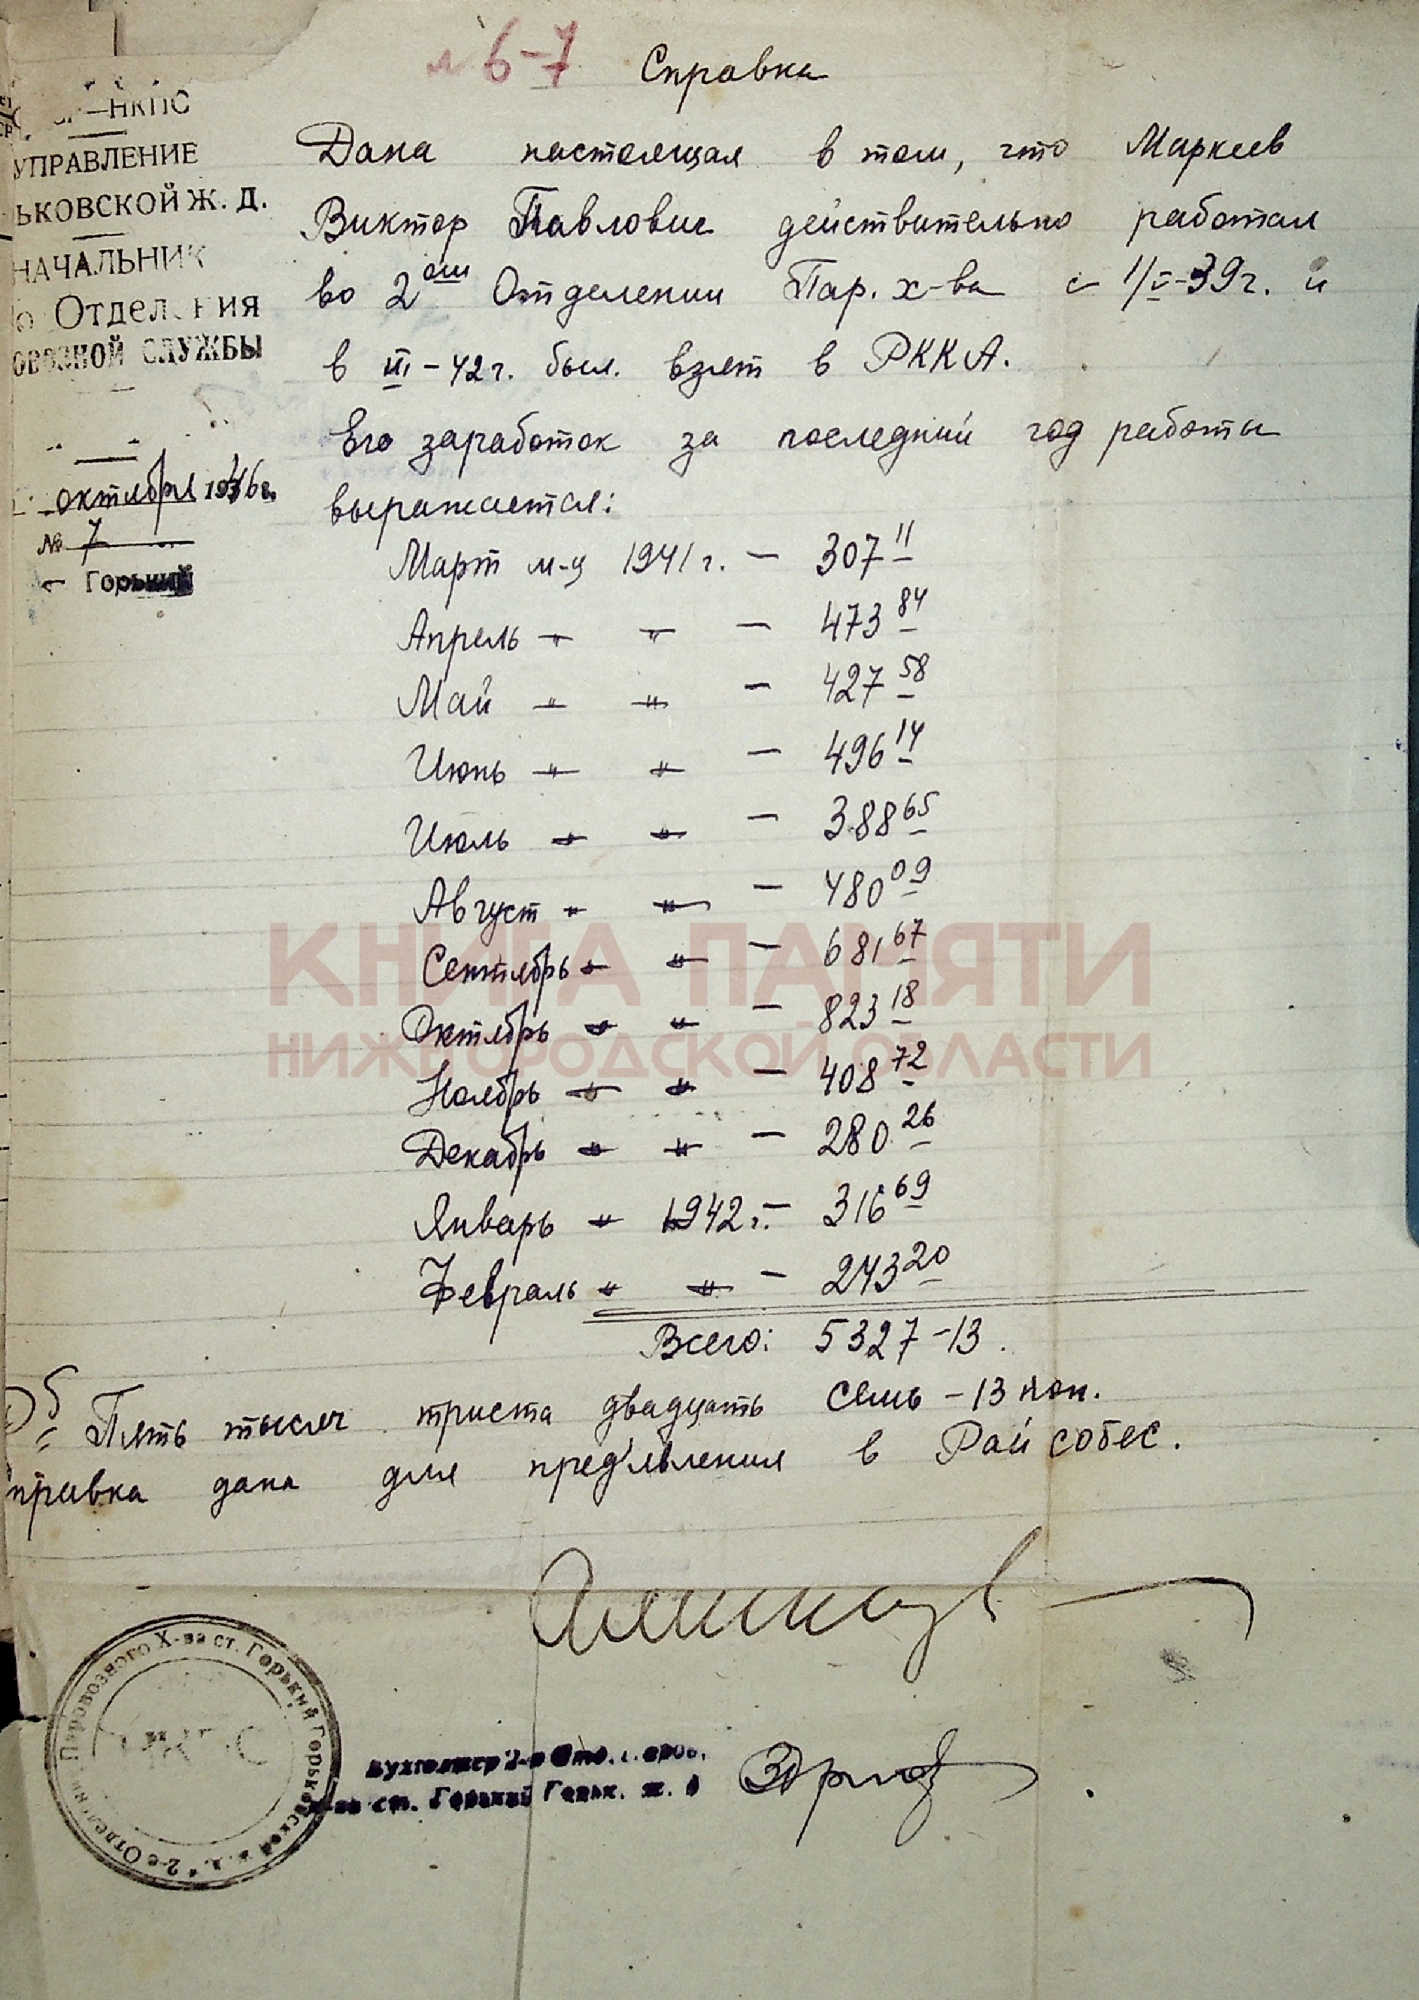 6-7
Справка
НКПС
УПРАВЛЕНИЕ
ЬКОВСКОЙ Ж. Д.
НАЧАЛЬНИК
Отделения
ОВОЗНОЙ СЛУЖБЫ
октября 1946 г.
№ 7
Горький
Дана настоящая в том, что Маркеев
Виктор Павлович действительно работал
во 2ом Отделении Пар. х-ва с 1/V-39г. и
в III-42г. был взят в РККА.
Его заработок за последний год работы
выражается:
Март м-ц 1941 г. — 307 11
Апрель -"- -"- — 473 84
Май -"- -"- — 427 58
Июнь -"- -"- — 496 14
Июль -"- -"- — 388 65
Август -"- -"- — 480 09
Сентябрь -"- -"- — 681 67
Октябрь -"- -"- — 823 18
Ноябрь -"- -"- — 408 72
Декабрь -"- -"- — 280 26
Январь -"- 1942 г. — 316 69
Февраль -"- -"- — 243 20
Всего: 5327-13.
Пять тысяч триста двадцать семь - 13 коп.
правка дана для пред'явления в Райсобес.
Паровозного Х-ва ст. Горький Горьковской ж. д. * 2-е Отделен
НКПС
Бухгалтер 2-о Отд.
х-ва ст. Горький Горьк. ж. д
КНИГА ПАМЯТИ
НИЖЕГОРОДСКОЙ ОБЛАСТИ